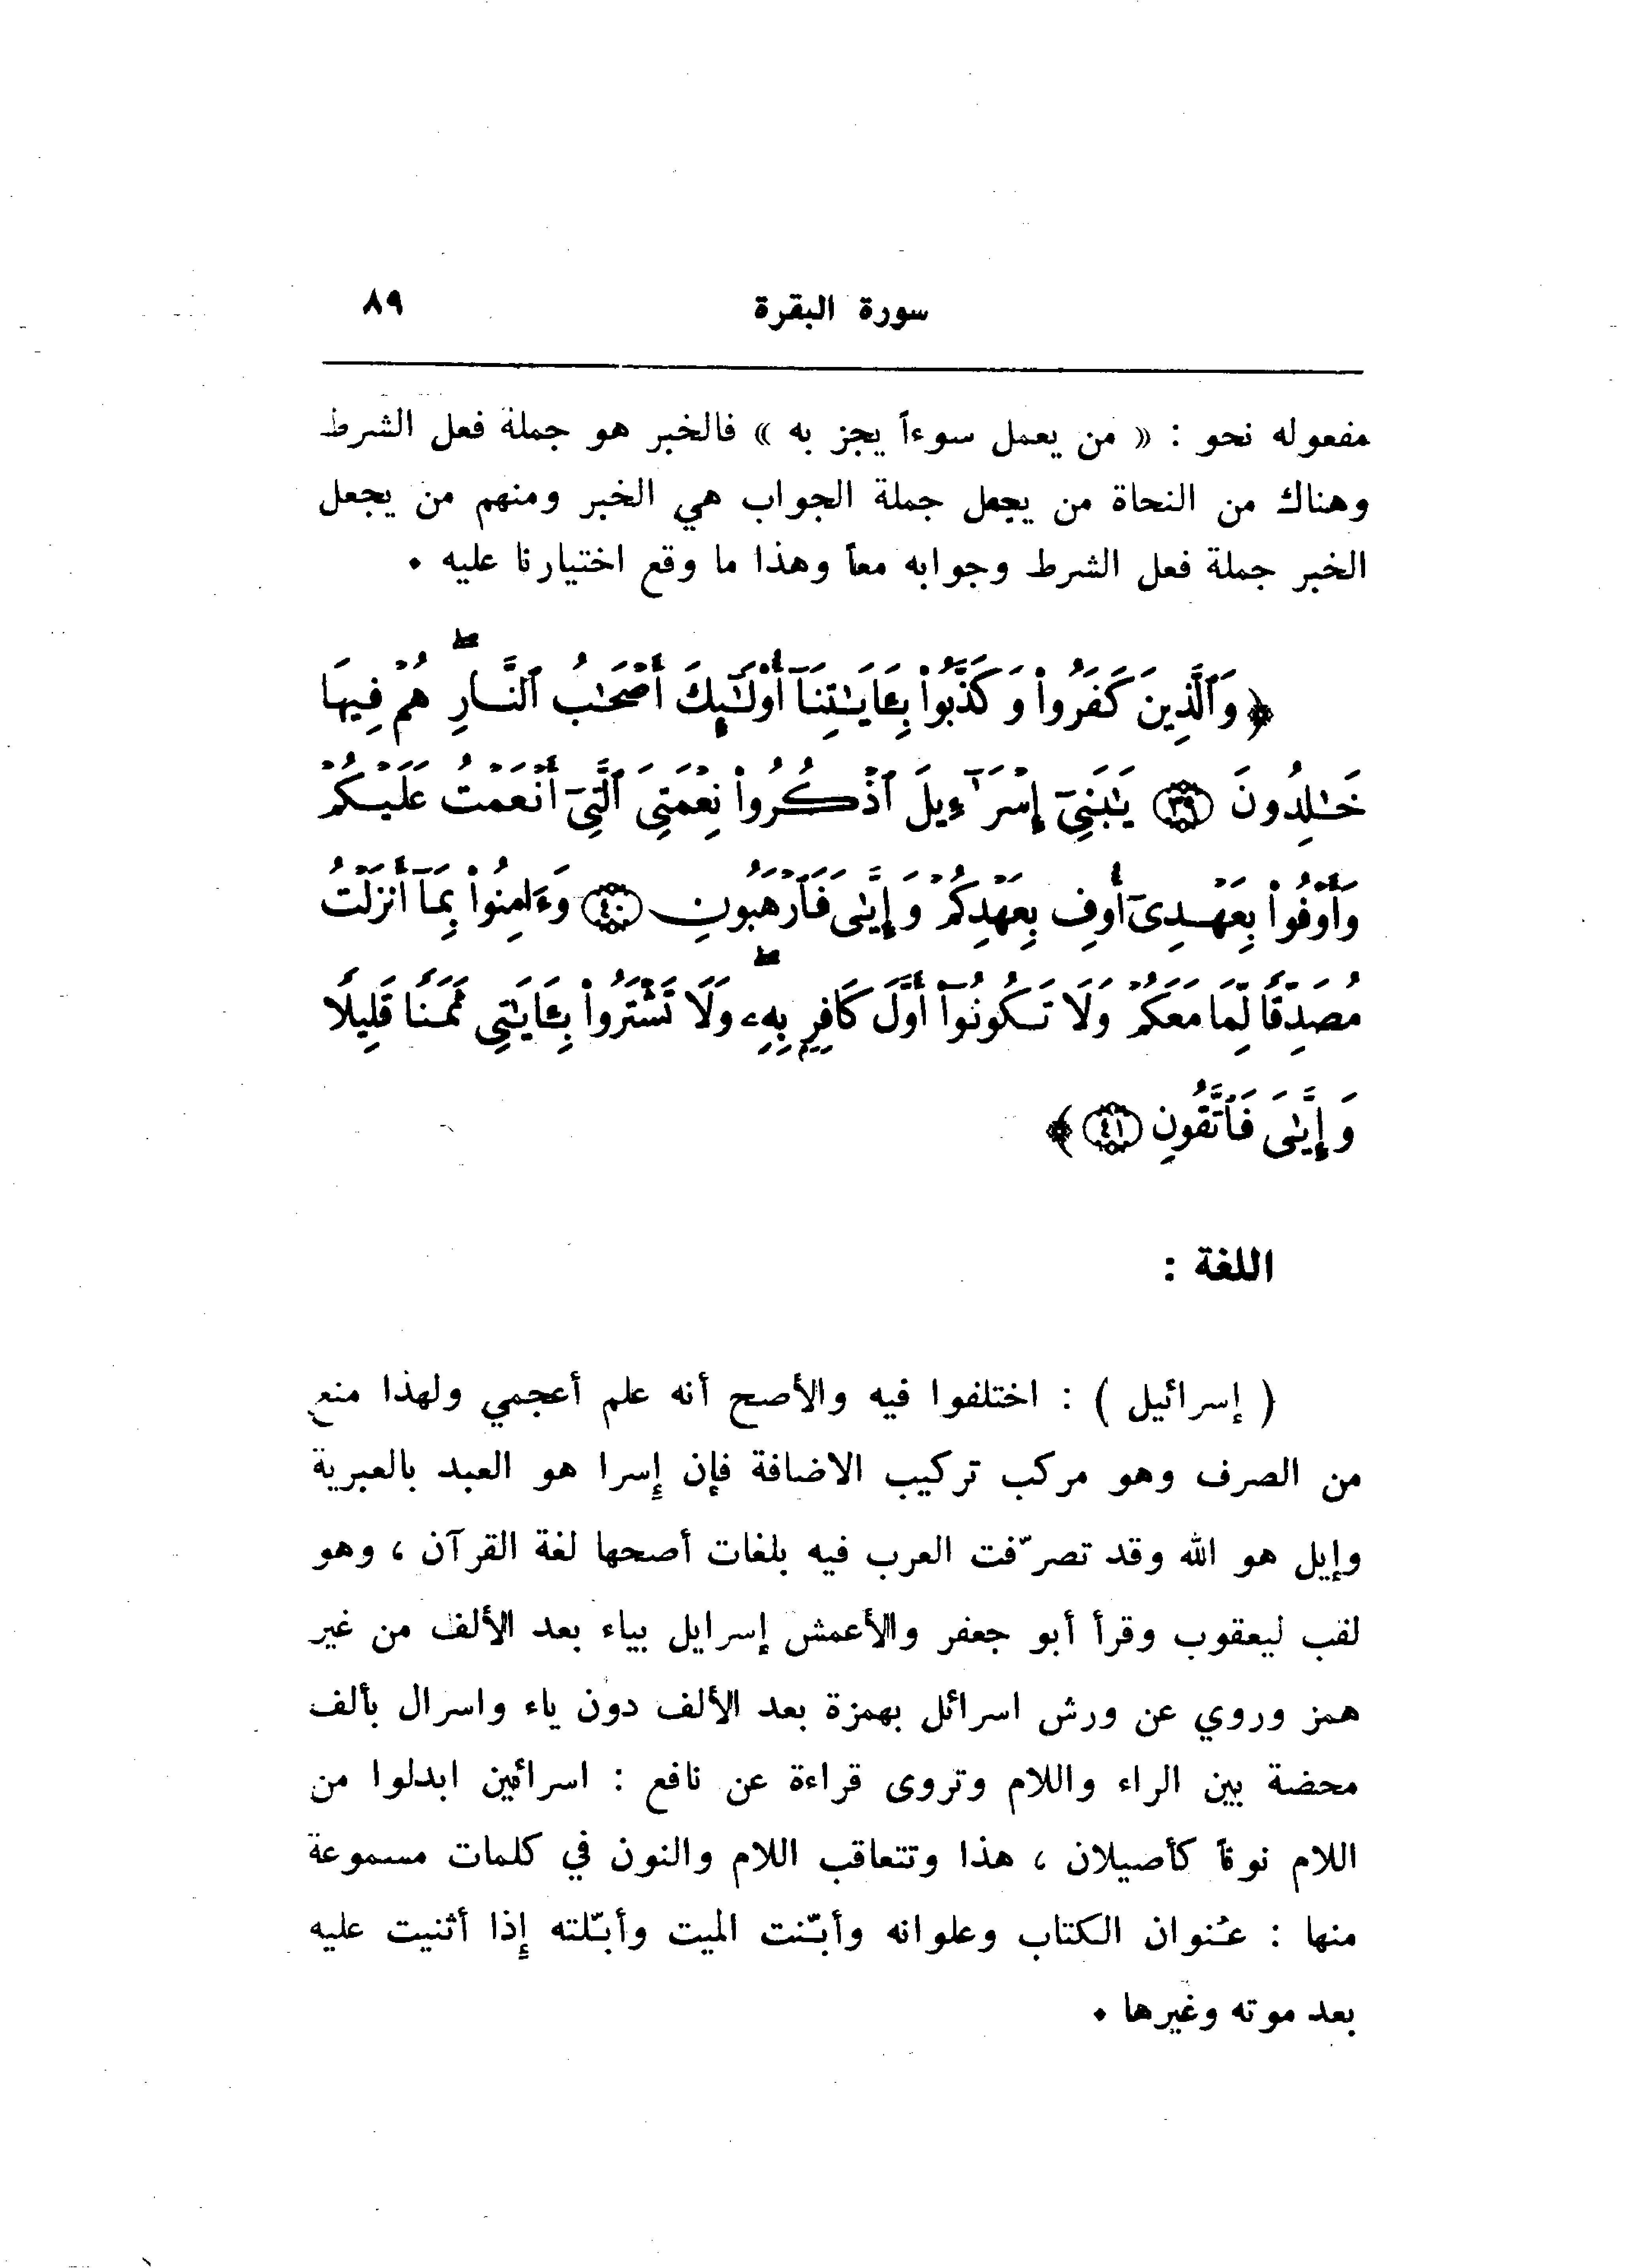 سورة البقرة ٨٩
مفعوله نحو : « من يعمل سوءاً يجز به » فالخبر هو جملة فعل الشرط
وهناك من النحاة من يجعل جملة الجواب هي الخبر ومنهم من يجعل
الخبر جملة فعل الشرط وجوابه معاً وهذا ما وقع اختيارنا عليه ٠
﴿ وَٱلَّذِينَ كَفَرُوا۟ وَكَذَّبُوا۟ بِـَٔايَـٰتِنَآ أُو۟لَـٰٓئِكَ أَصْحَـٰبُ ٱلنَّارِ ۖ هُمْ فِيهَا
خَـٰلِدُونَ ﴿٣٩﴾ يَـٰبَنِىٓ إِسْرَٰٓءِيلَ ٱذْكُرُوا۟ نِعْمَتِىَ ٱلَّتِىٓ أَنْعَمْتُ عَلَيْكُمْ
وَأَوْفُوا۟ بِعَهْدِىٓ أُوفِ بِعَهْدِكُمْ وَإِيَّـٰىَ فَٱرْهَبُونِ ﴿٤٠﴾ وَءَامِنُوا۟ بِمَآ أَنزَلْتُ
مُصَدِّقًا لِّمَا مَعَكُمْ وَلَا تَكُونُوٓا۟ أَوَّلَ كَافِرٍۭ بِهِۦ ۖ وَلَا تَشْتَرُوا۟ بِـَٔايَـٰتِى ثَمَنًا قَلِيلًا
وَإِيَّـٰىَ فَٱتَّقُونِ ﴿٤١﴾ ﴾
اللغة :
( إسرائيل ) : اختلفوا فيه والأصح أنه علم أعجمي ولهذا منع
من الصرف وهو مركب تركيب الاضافة فإن إسرا هو العبد بالعبرية
وإيل هو الله وقد تصرّفت العرب فيه بلغات أصحها لغة القرآن ، وهو
لقب ليعقوب وقرأ أبو جعفر والأعمش إسرايل بياء بعد الألف من غير
همز وروي عن ورش اسرائل بهمزة بعد الألف دون ياء واسرال بألف
محضة بين الراء واللام وتروى قراءة عن نافع : اسرائين ابدلوا من
اللام نوناً كأصيلان ، هذا وتتعاقب اللام والنون في كلمات مسموعة
منها : عُنوان الكتاب وعلوانه وأبّنت الميت وأبّلته إذا أثنيت عليه
بعد موته وغيرها ٠